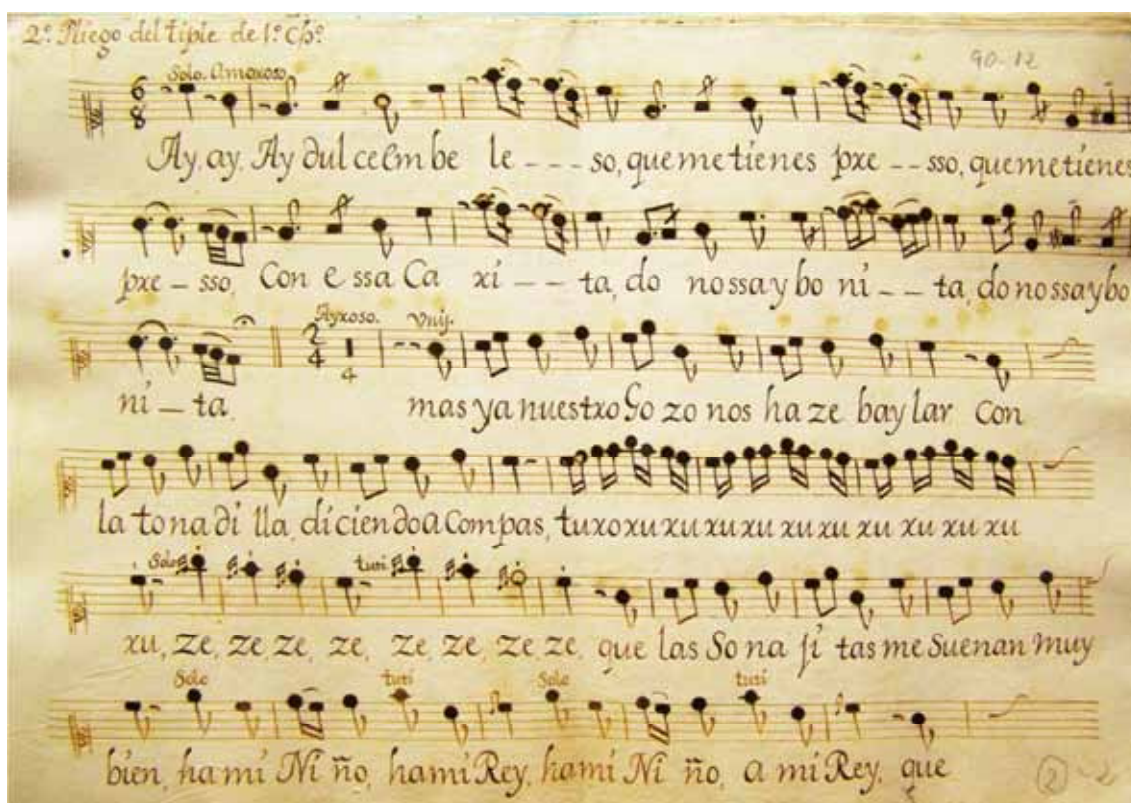 2º Pliego del tiple de 1º Chº
90-12
Solo. Amoroso
6 8
Ay, ay, Ay dulce Em be le - - - so, que me tienes pre - - sso, que me tienes
pre - sso, Con e ssa Ca ri - - ta, do no ssa y bo ni - - ta, do no ssa y bo
Ayroso. Vnij.
2 4 4
ni - ta. mas ya nuestro Go zo nos ha ze baylar con
la to na di lla, diciendo a Compas, turo ru ru ru ru ru ru ru ru ru ru
Solo tuti
ru, ze, ze, ze, ze, ze, ze, ze, ze, que las So na ji tas me Suenan muy
Solo tuti Solo tuti
bien, ha mi Ni ño, ha mi Rey, ha mi Ni ño, a mi Rey, que
2